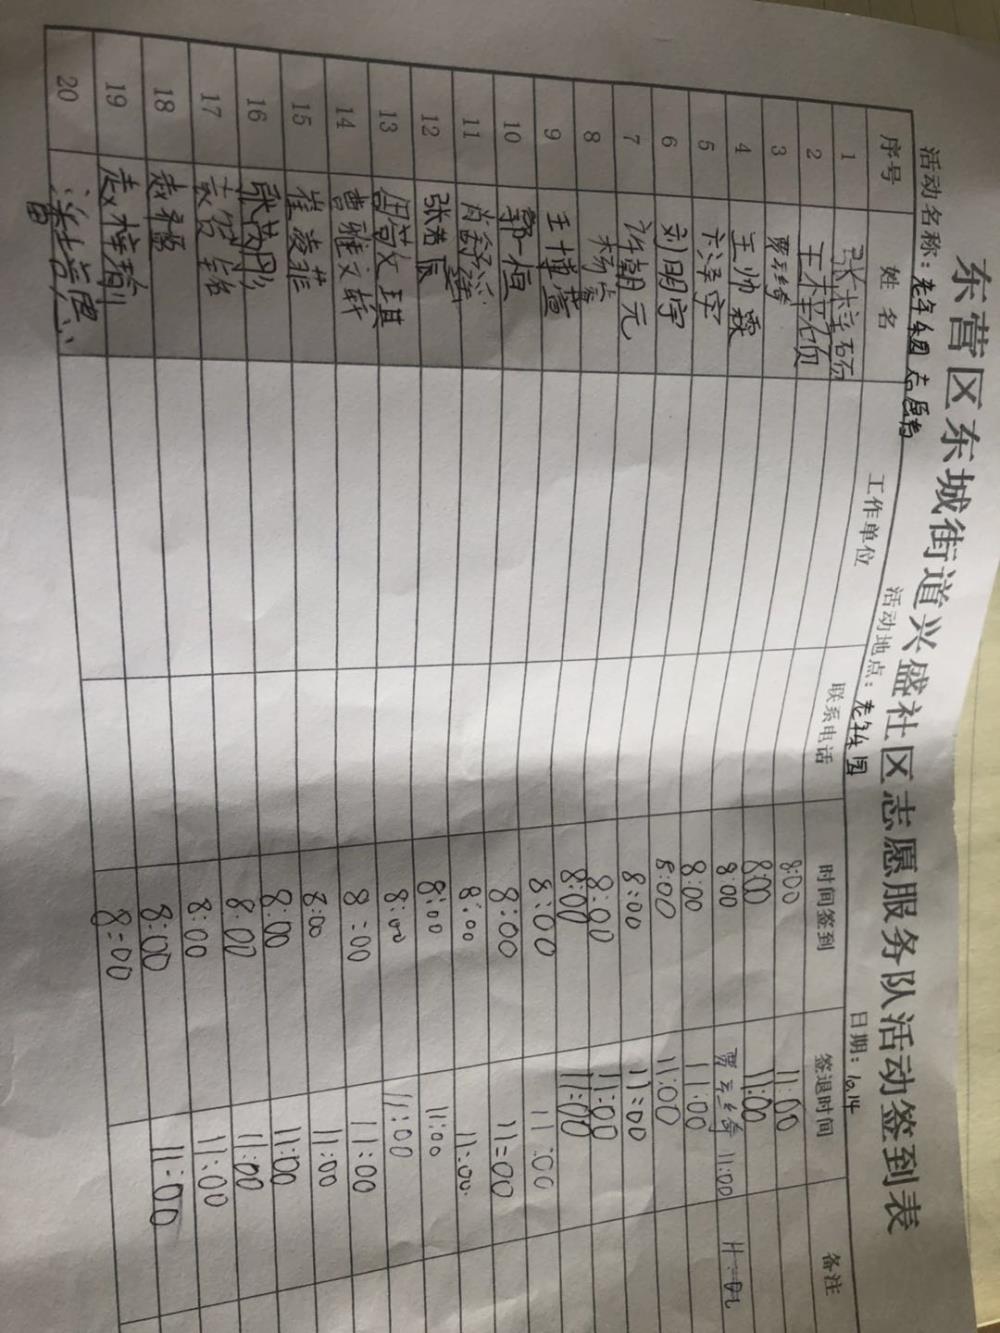 东营区东城街道兴盛社区志愿服务队活动签到表
活动名称：老年乐园志愿者 活动地点：老年乐园 日期：10.14
序号 姓名 工作单位 联系电话 时间签到 签退时间 备注
1 张梓砺 8:00 11:00
2 王梓 8:00 11:00
3 贾云绮 8:00 贾云绮 11:00
4 王帅霖 8:00 11:00
5 卞泽宇 8:00 11:00
6 刘明宇 8:00 11:00
7 许朝元 8:00 11:00
8 杨 8:00 11:00
9 王博萱 8:00 11:00
10 郭恒 8:00 11:00
11 舒 8:00 11:00
12 张 辰 8:00 11:00
13 田苡琪 8:00 11:00
14 曹雅文轩 8:00 11:00
15 崔凌菲 8:00 11:00
16 张 8:00 11:00
17 袁 铭 8:00 11:00
18 赵 8:00 11:00
19 赵梓 8:00 11:00
20